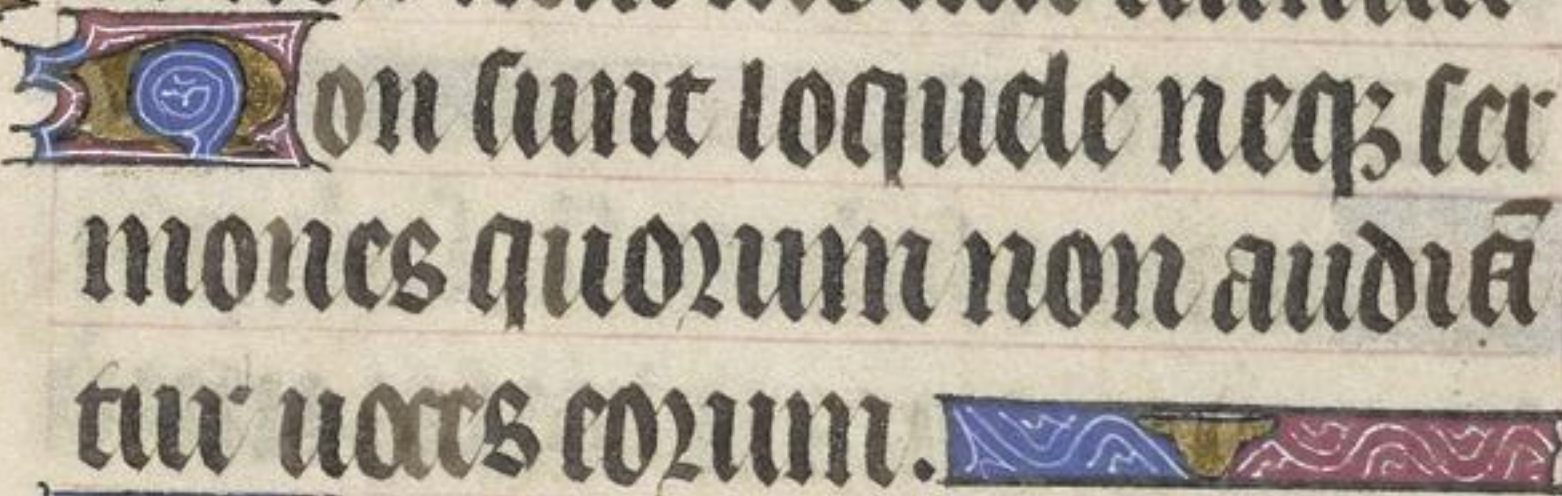 Non sunt loquele neqꝫ ser
mones quorum non audiā
tur uoces eorum.